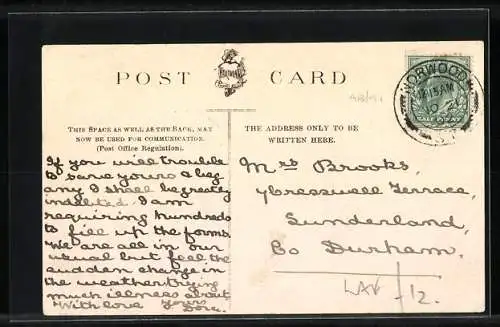 POST CARD
NORWOOD
12.15AM
HALFPENNY
THIS SPACE AS WELL AS THE BACK, MAY
NOW BE USED FOR COMMUNICATION.
(Post Office Regulation).
THE ADDRESS ONLY TO BE
WRITTEN HERE.
If you will trouble
to save yours I beg
any I shall be greatly
indebted. I am
requiring hundreds
to fill up the forms.
We are all in our
usual but feel the
sudden change in
the weather. trying
much illness about
With love yours
Dora.
Mrs Brooks,
Cresswell Terrace,
Sunderland,
Co Durham.
LAV -12.